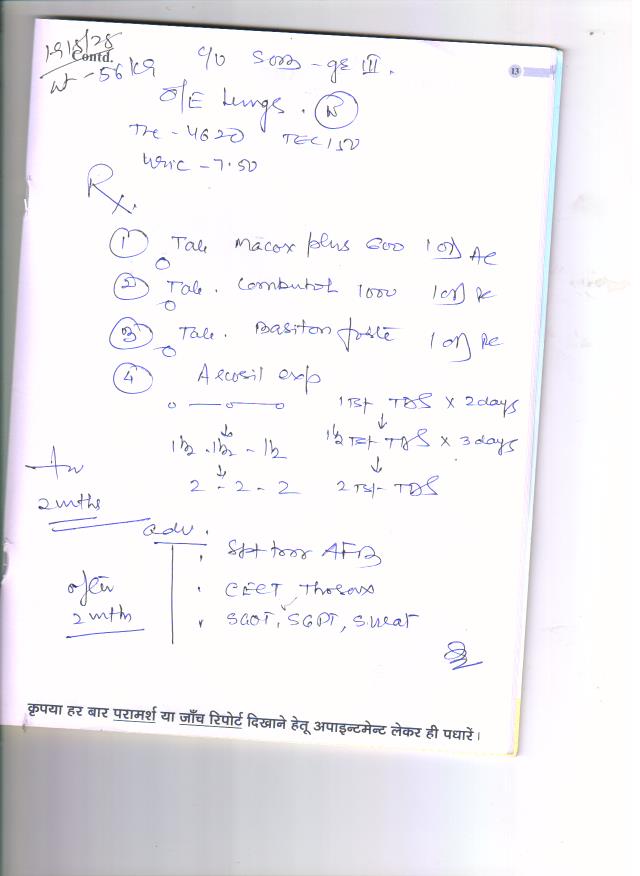 19/5/25
Contd.
wt - 56 kg
c/o SOB - gr III.
13
O/E Lungs . (N)
TLC - 4620 TEC 150
Uric - 7.50
Rx.
1 Tab Macox plus 600 1 OD AC
2 Tab. Combutol 1000 1 OD
3 Tab. Basiton forte 1 OD PC
4 Alcosil exp
1 TSF TDS x 2 days
1½ - 1½ - 1½ 1½ TSF TDS x 3 days
2 - 2 - 2 2 TSF TDS
2 mths
adv.
Spt for AFB
after . CECT, Thorax
2 mth . SGOT, SGPT, S. Ureat
कृपया हर बार परामर्श या जाँच रिपोर्ट दिखाने हेतू अपाइन्टमेन्ट लेकर ही पधारें।